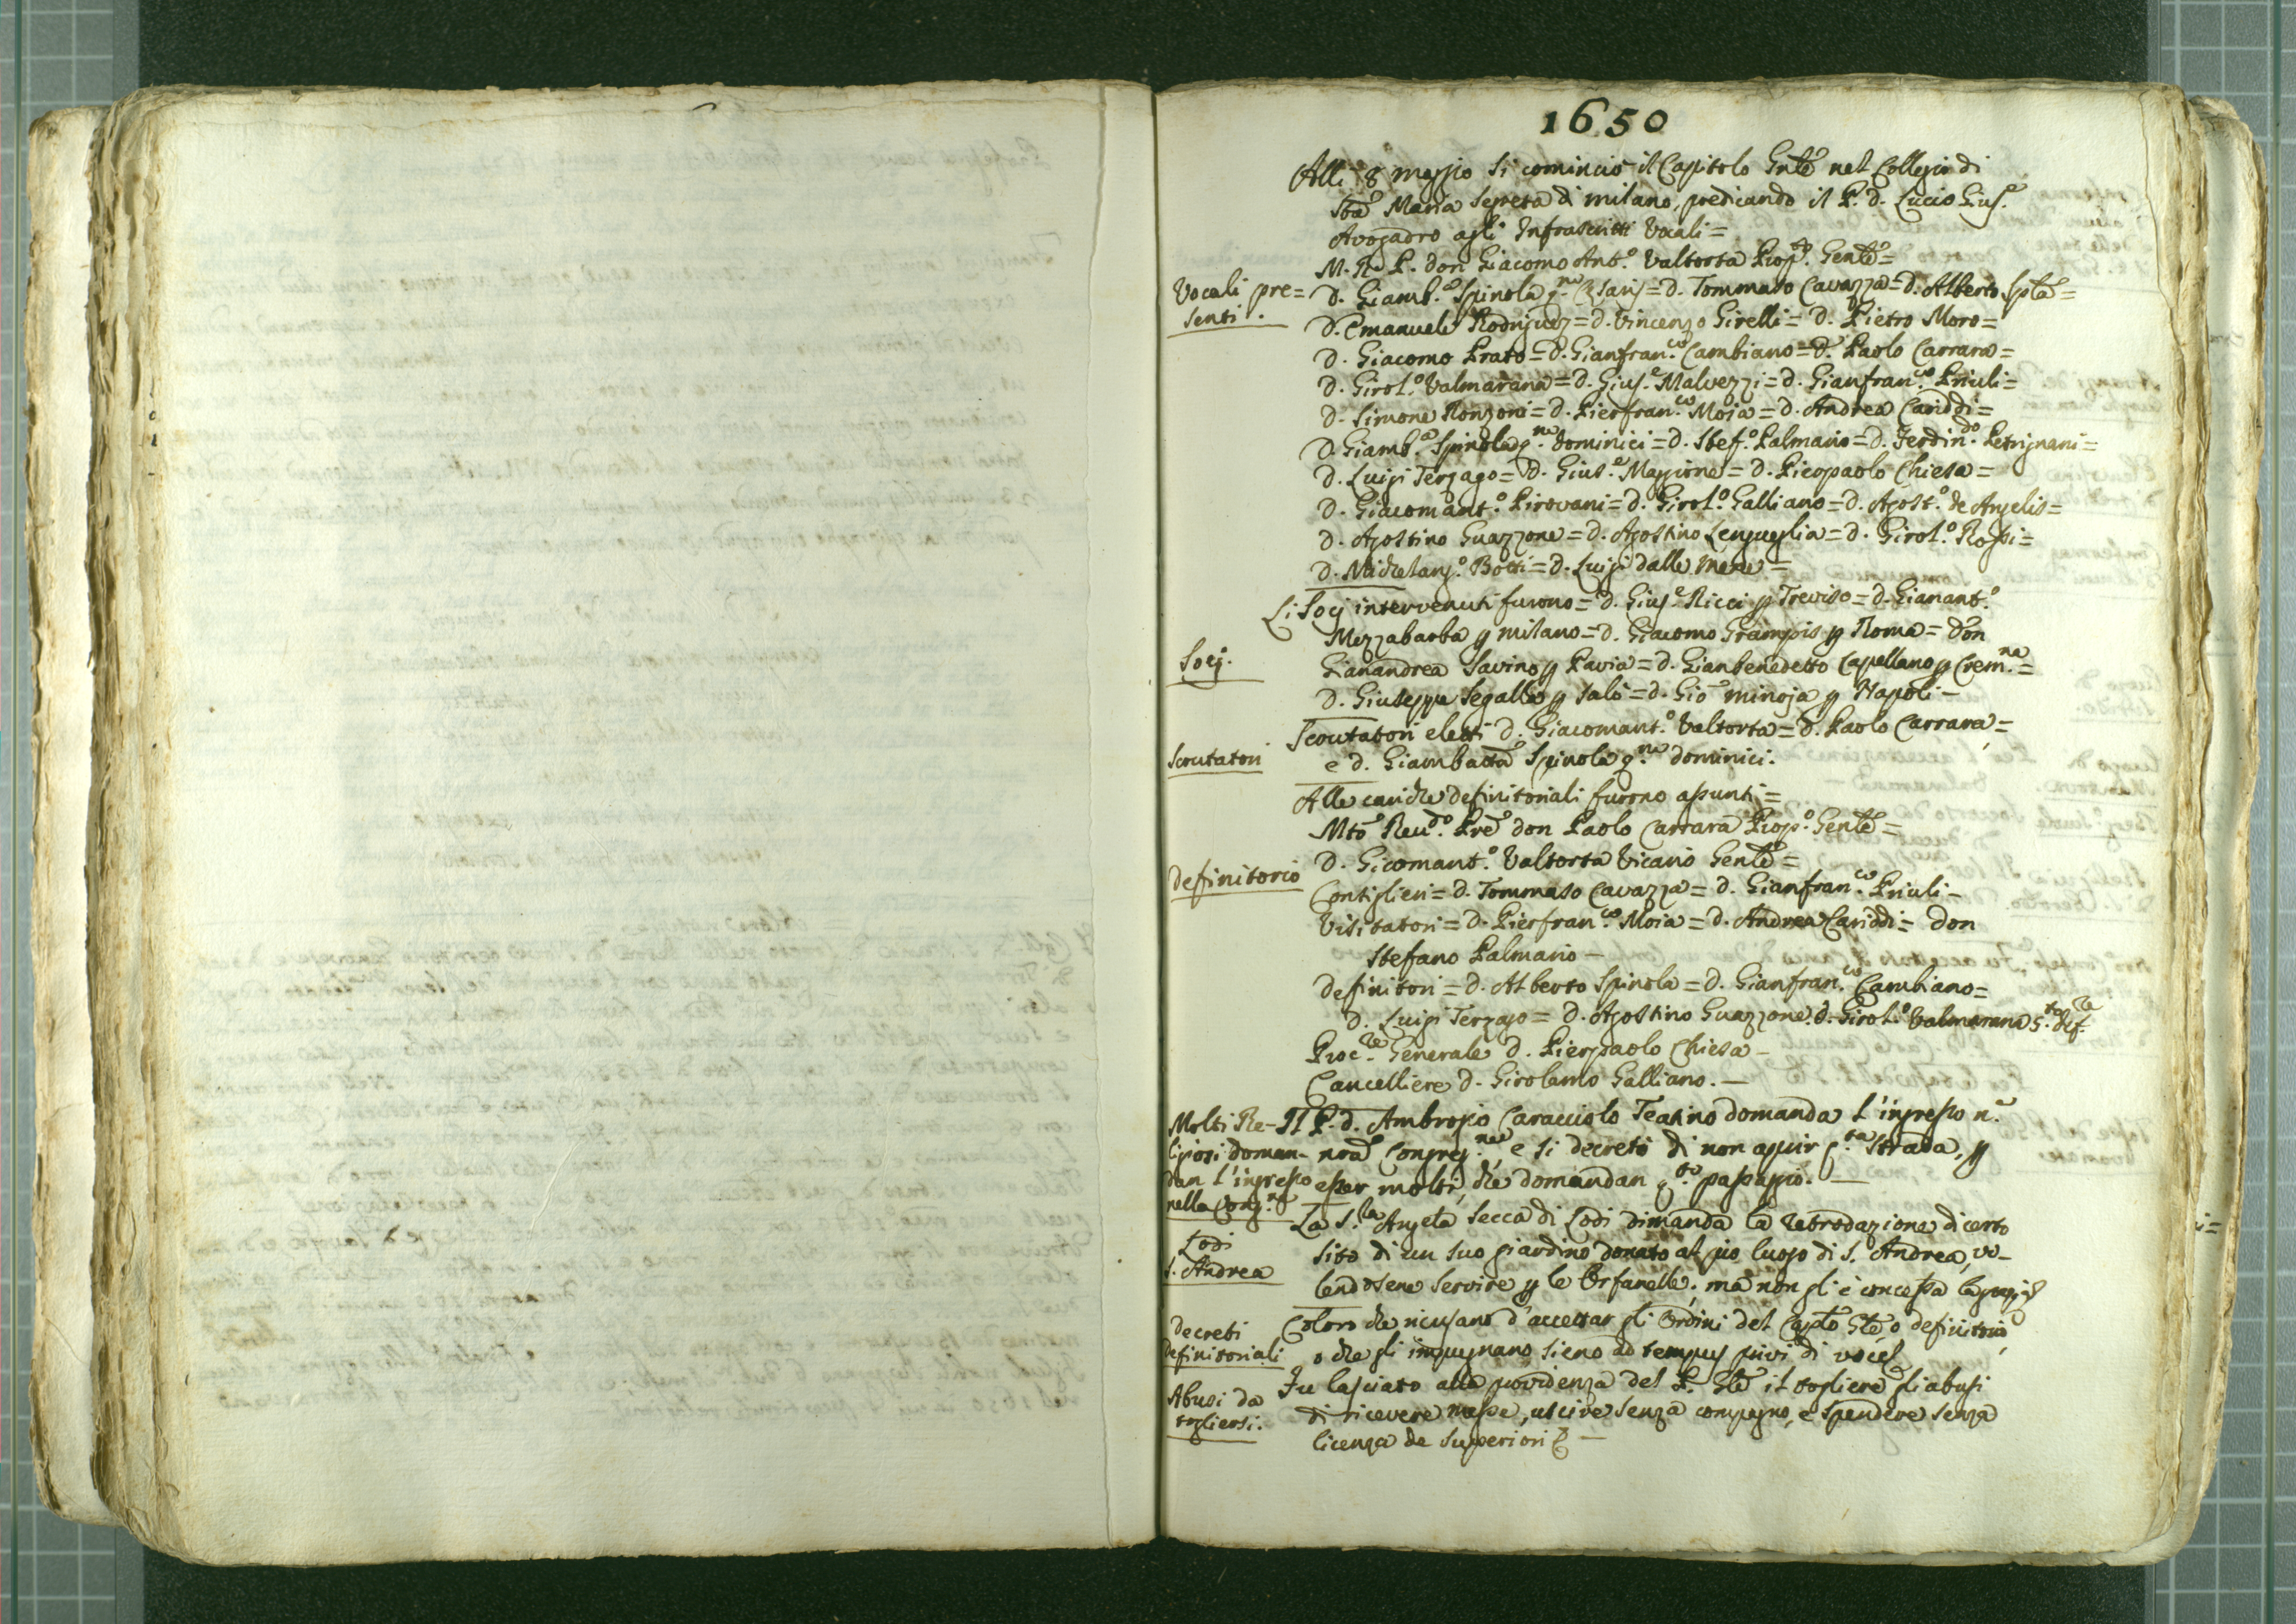 1650
Alli 8 maggio si cominciò il Capitolo Gnle nel Collegio di
Sta Maria Segreta di milano, predicando il P. d. Lucio Gius.e
Avogadro agli Infrascritti Vocali =
M. R. P. don Giacomo Ant.o Valtorta Prop.to Genle =
Vocali pre=
senti.
D. Giamb.a Spinola q.m Cesaris = D. Tommaso Cavazza = D. Alberto Spla =
D. Emanuele Rodriguez = D. Vincenzo Girelli = D. Pietro Moro =
D. Giacomo Prato = D. Gianfran.co Cambiano = D. Paolo Carrara =
D. Girol.o Valmarana = D. Gius.e Malvezzi = D. Gianfran.co Priuli =
D. Simone Ronzoni = D. Pierfran.co Moia = D. Andrea Cariddi =
D. Giamb.a Spinola q.m Dominici = D. Stef.o Palmario = D. Ferdin.do Petrignani =
D. Luigi Terzago = D. Gius.e Maggione = D. Pierpaolo Chiesa =
D. Giacomant.o Pirovani = D. Girol.o Galliano = D. Agost.o de Angelis =
D. Agostino Guazzone = D. Agostino Lengueglia = D. Girol.o Rossi =
D. Michelang.o Botti = D. Luigi dalle Mene —
Li Socj intervenuti furono = D. Gius.e Ricci p Treviso = D. Gianant.o
Mezzabarba p milano = D. Giacomo Grampis p Roma = Don
Socj.
Gianandrea Savino p Pavia = D. Gianbenedetto Capellano p Crem.na =
D. Giuseppe Segalla p Salò = D. Gio minoja p Napoli —
Scrutatori
Scrutatori eletti D. Giacomant.o Valtorta = D. Paolo Carrara =
e D. Giambatta Spinola q.m Dominici.
Alle cariche definitoriali furono assunti =
Mto Revd.o Pre don Paolo Carrara Prop.o Genle =
Definitorio
D. Gicomant.o Valtorta Vicario Genle =
Consiglieri = D. Tommaso Cavazza = D. Gianfran.co Priuli —
Visitatori = D. Pierfran.co Moia = D. Andrea Cariddi = Don
Stefano Palmario —
Definitori = D. Alberto Spinola = D. Gianfran.co Cambiano =
D. Luigi Terzago = D. Agostino Guazzone. D. Girol.o Valmarana 5.to def.re
Proc.re Generale D. Pierpaolo Chiesa —
Cancelliere D. Girolamo Galliano. —
Molti Re-
ligiosi doman-
dan l'ingresso
nella Cong.ne
Il P. D. Ambrogio Caracciolo Teatino domanda l'ingresso n.a
nra Congreg.ne, e si decretò di non aprir q.ta strada, p
esser molti, che domandan q.to passaggio. —
Lodi
S. Andrea
La S.ra Angela Secca di Lodi dimanda la retrodazione di certo
sito di un suo giardino donato al pio luogo di S. Andrea, vo-
lendosene servire p le Orfanelle; ma non gl'è concessa la grazia
Decreti
Definitoriali
Coloro che ricusano d'accettar gli Ordini del Caplo Gle, o definitorio,
o che gli impugnano sieno ad tempus privi di voce
Abusi da
togliersi.
Fu lasciato alla providenza del P. Gle il togliere gli abusi
di ricevere messe, uscire senza compagno, e spendere senza
licenza de superiori —